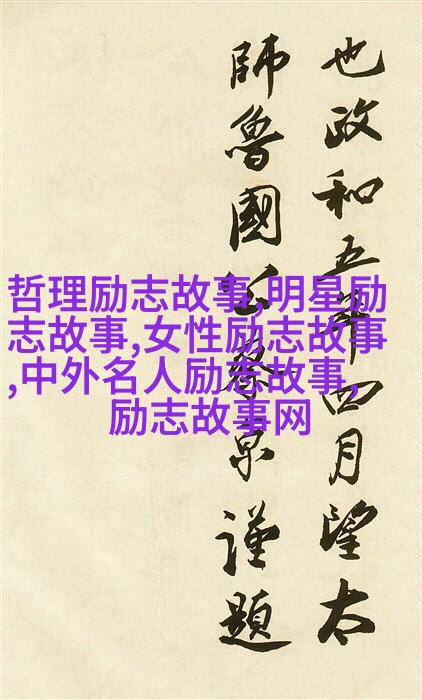 也政和五年四月望太
師魯國公蔡京謹題
哲理励志故事,明星励
志故事,女性励志故事
,中外名人励志故事,
励志故事网